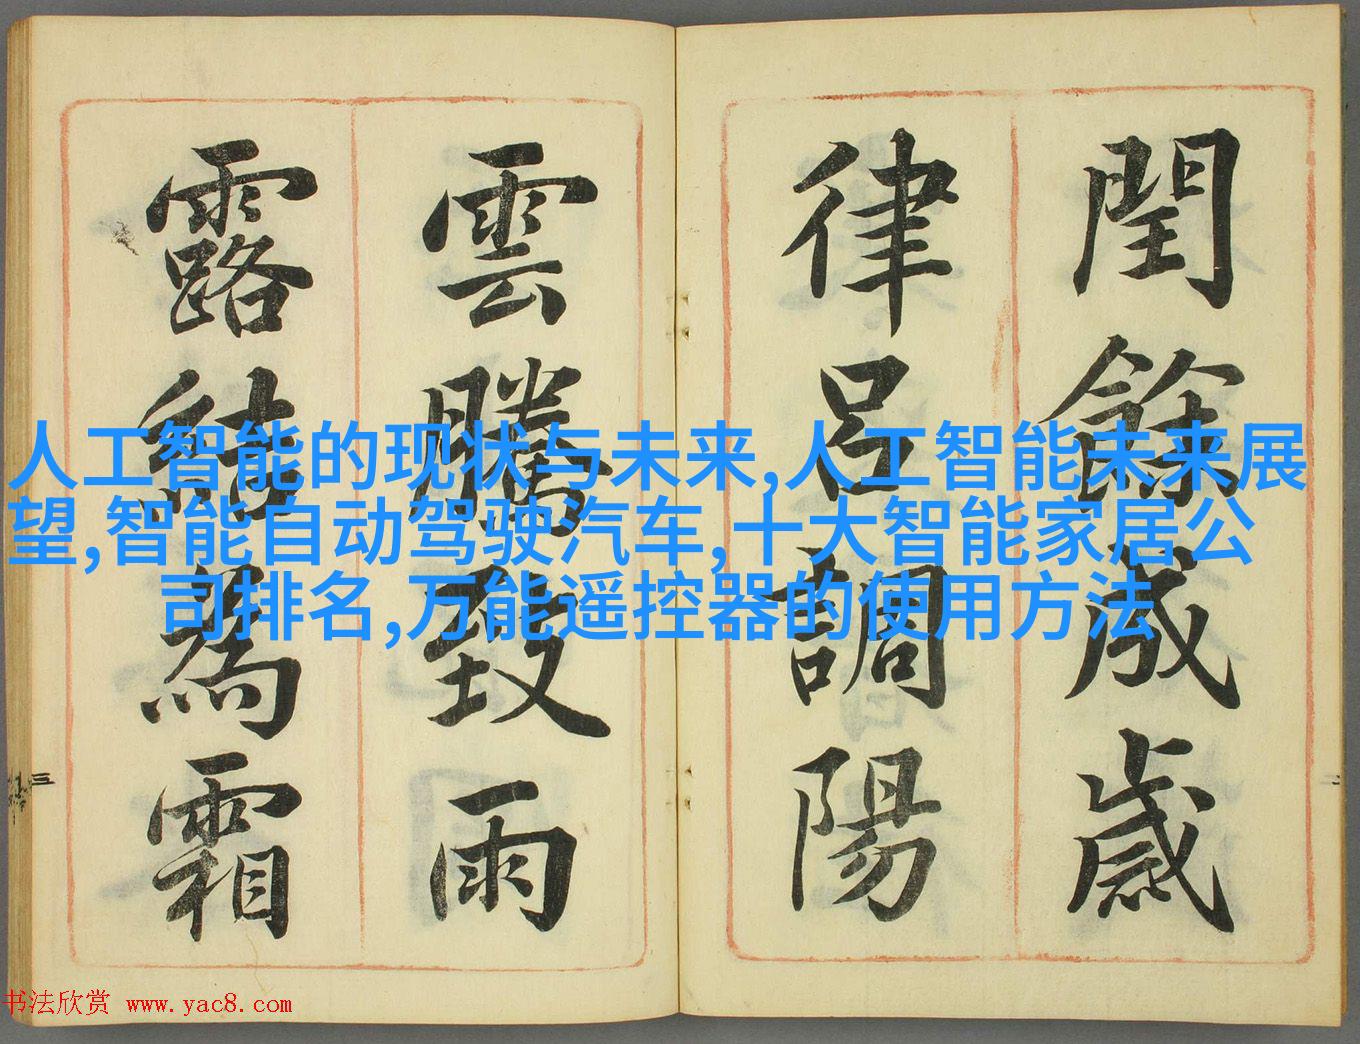 閏餘成歲
律呂調陽
雲騰致雨
露結為霜
人工智能的现状与未来,人工智能未来展
望,智能自动驾驶汽车,十大智能家居公
司排名,万能遥控器的使用方法
三
二
书法欣赏 www.yac8.com